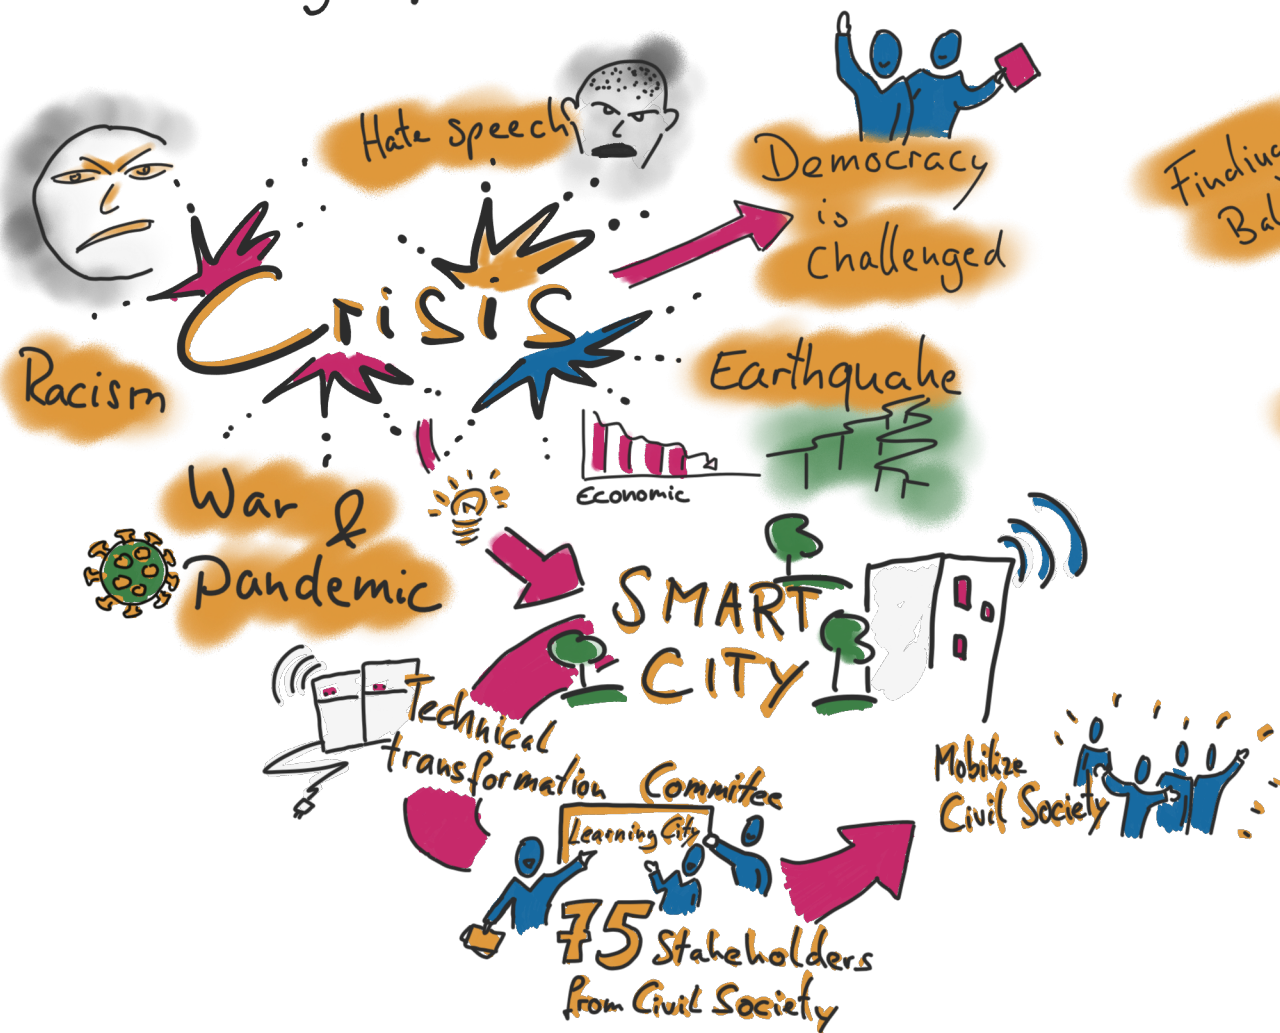 Hate speech
Democracy
is
challenged
Finding
Crisis
Racism
Earthquake
Economic
War &
Pandemic
SMART
CITY
Technical
transformation
Commitee
Learning City
Mobilize
Civil Society
75 Stakeholders
from Civil Society